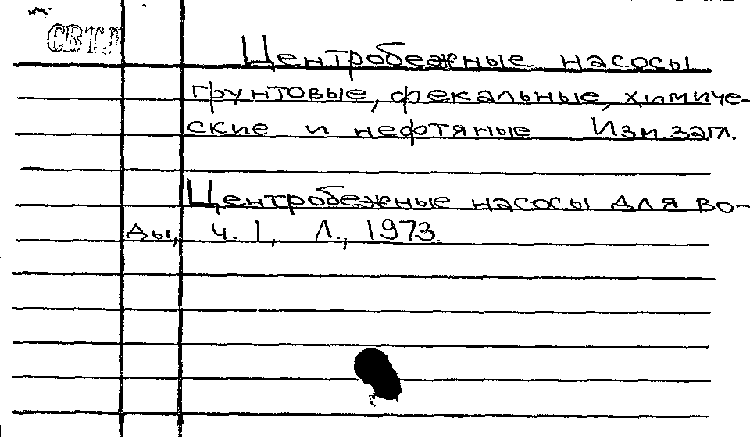 СВТЛ
Центробежные насосы
грунтовые, фекальные, химиче-
ские и нефтяные Изм. загл.
Центробежные насосы для во-
ды, ч. 1, Л., 1973.